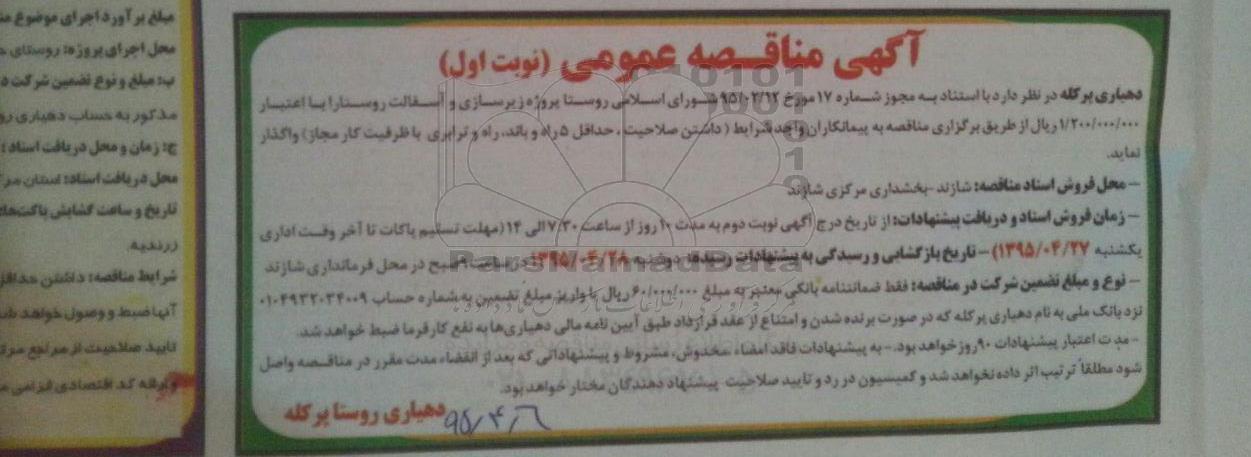 آگهی مناقصه عمومی (نوبت اول)
دهیاری پرکله در نظر دارد با استناد به مجوز شماره ۱۷ مورخ ۹۵/۰۲/۱۲ شورای اسلامی روستا پروژه زیرسازی و آسفالت روستا را با اعتبار
۱/۲۰۰/۰۰۰/۰۰۰ ریال از طریق برگزاری مناقصه به پیمانکاران واجد شرایط (داشتن صلاحیت، حداقل ۵ راه و باند، راه و ترابری با ظرفیت کار مجاز) واگذار
نماید.
– محل فروش اسناد مناقصه: شازند -بخشداری مرکزی شازند
– زمان فروش اسناد و دریافت پیشنهادات: از تاریخ درج آگهی نوبت دوم به مدت ۱۰ روز از ساعت ۷/۳۰ الی ۱۴ (مهلت تسلیم پاکات تا آخر وقت اداری
یکشنبه ۱۳۹۵/۰۴/۲۷) – تاریخ بازگشایی و رسیدگی به پیشنهادات رسیده: دوشنبه ۱۳۹۵/۰۴/۲۸ در ساعت ۹ صبح در محل فرمانداری شازند
– نوع و مبلغ تضمین شرکت در مناقصه: فقط ضمانتنامه بانکی معتبر به مبلغ ۶۰/۰۰۰/۰۰۰ ریال یا واریز مبلغ تضمین به شماره حساب ۰۱۰۴۹۳۲۰۳۴۰۰۹
نزد بانک ملی به نام دهیاری پرکله که در صورت برنده شدن و امتناع از عقد قرارداد طبق آیین نامه مالی دهیاری‌ها به نفع کارفرما ضبط خواهد شد.
– مدت اعتبار پیشنهادات ۹۰ روز خواهد بود. – به پیشنهادات فاقد امضاء، مخدوش، مشروط و پیشنهاداتی که بعد از انقضاء مدت مقرر در مناقصه واصل
شود مطلقاً ترتیب اثر داده نخواهد شد و کمیسیون در رد و تایید صلاحیت پیشنهاد دهندگان مختار خواهد بود.
دهیاری روستا پرکله
۹۵/۴/۶
ParsNamadData
مبلغ برآورد اجرای موضوع
محل اجرای پروژه: روستای
ب: مبلغ و نوع تضمین شرکت
مذکور به حساب دهیاری
ج: زمان و محل دریافت اسناد:
محل دریافت اسناد: استان
تاریخ و ساعت گشایش پاکت‌ها:
زرندیه.
شرایط مناقصه: داشتن حداقل
آنها ضبط و وصول خواهد
تایید صلاحیت از مراجع
کد اقتصادی الزامی